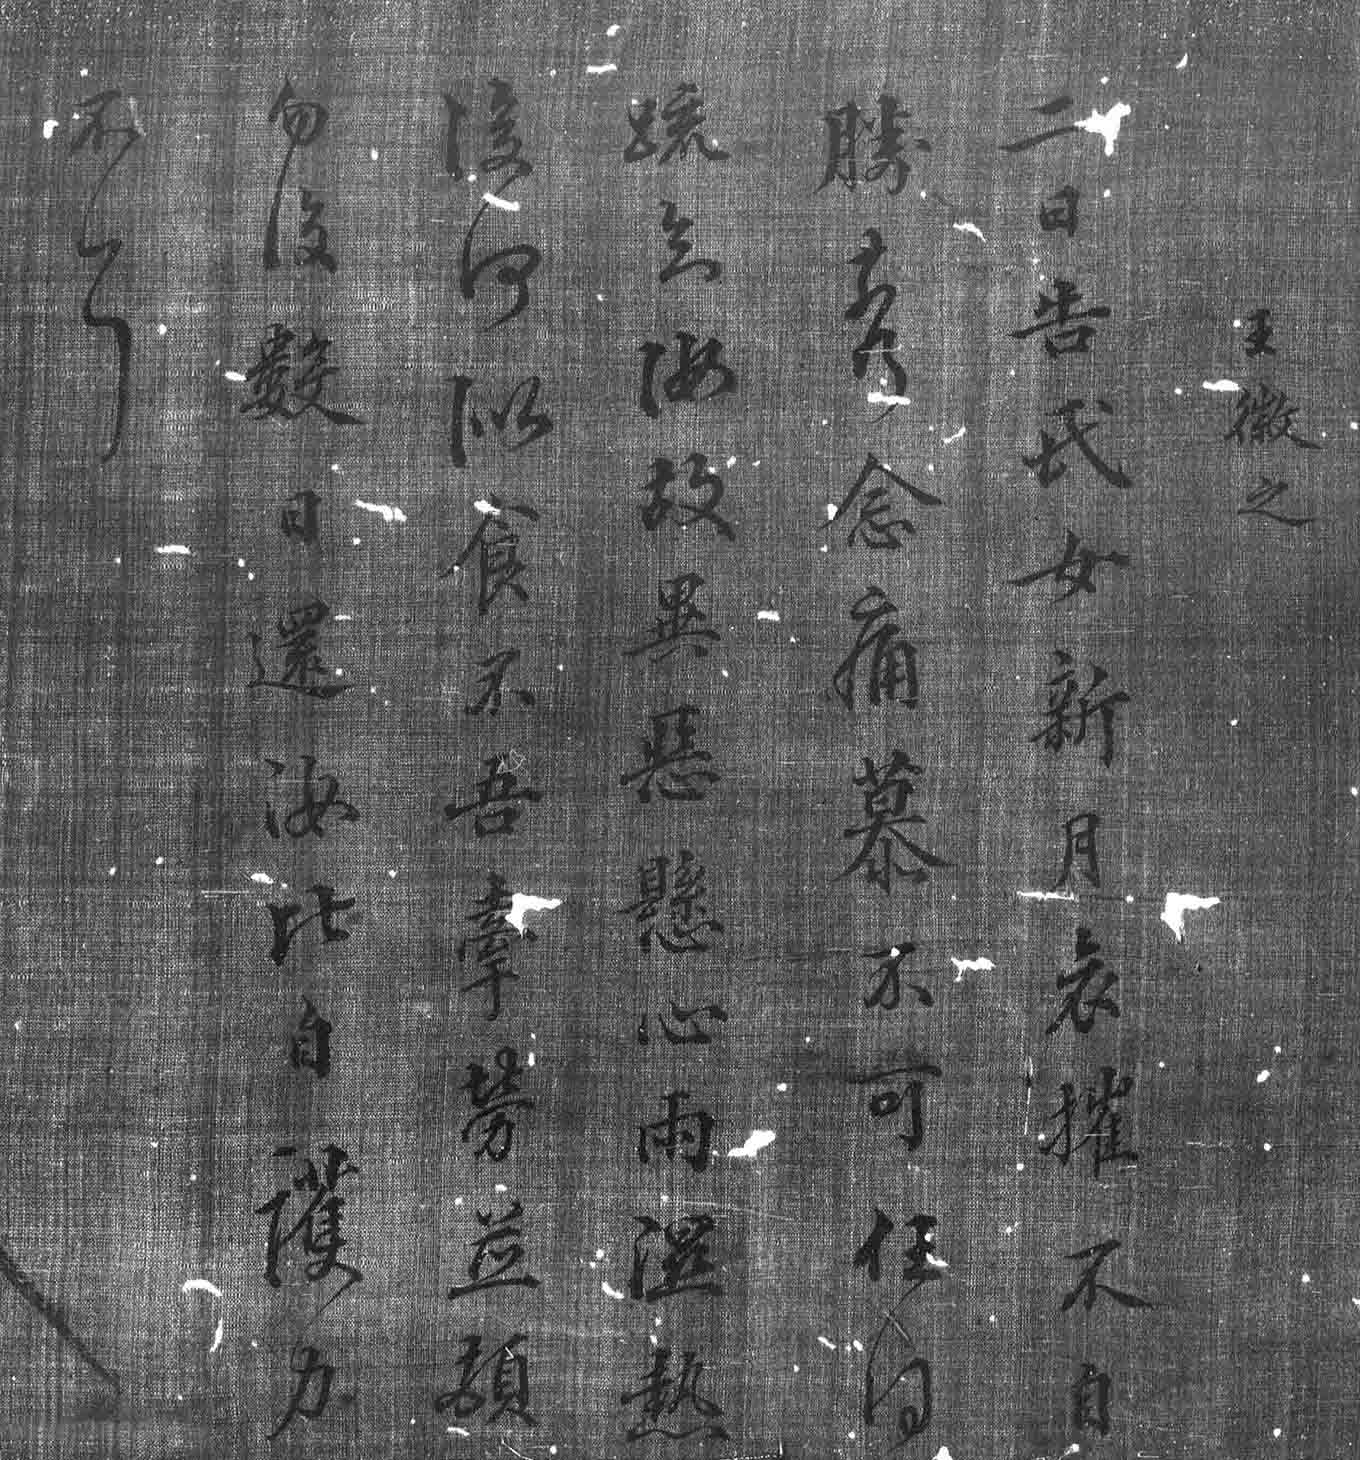 王徽之
二日告氏女新月哀摧不自
勝奈何念痛慕不可任得
疏知汝故異惡懸心雨濕熱
復何似食不吾牽勞並頓
勿復數日還汝比自護力
不